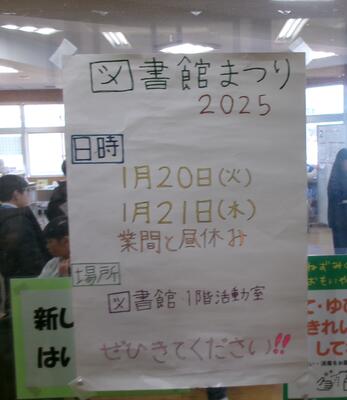 図書館まつり
2025
日時
1月20日(火)
1月21日(水)
業間と昼休み
場所
図書館 1階活動室
ぜひきてください!!
新し
はい
ねずみの
おもいや
て・ゆび
きれい
して